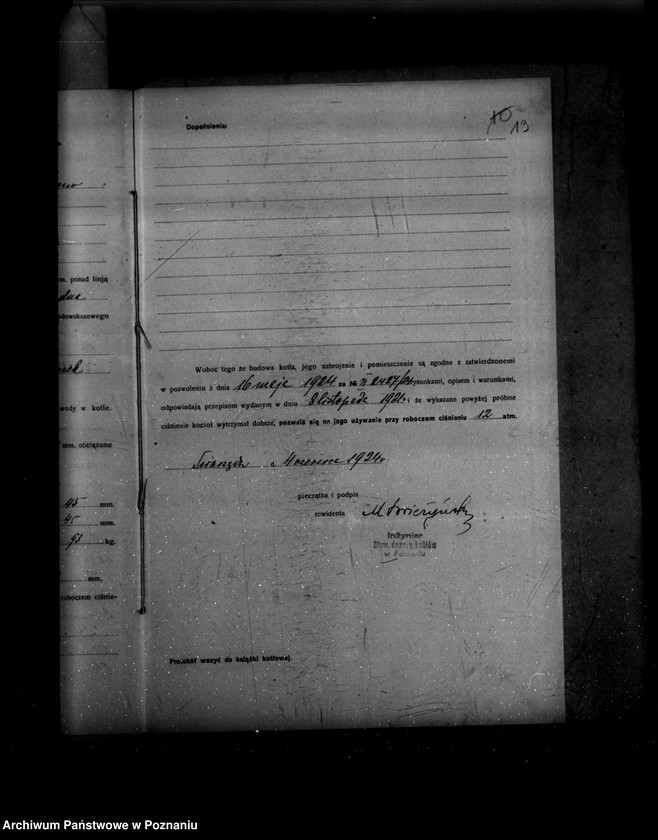 ono
m. ponad linją
dna
odowskazowego
wody w kotle.
mm. obciążone
45 mm.
45 mm.
93 kg.
mm.
roboczem ciśnie-
10
13
Dopełnienia:
Wobec tego że budowa kotła, jego uzbrojenie i pomieszczenie są zgodne z zatwierdzonemi
w pozwoleniu z dnia 16 maja 1924 za № rysunkami, opisem i warunkami,
odpowiadają przepisom wydanym w dniu 8 listopada 1921 r. i że wykazane powyżej próbne
ciśnienie kocioł wytrzymał dobrze, pozwala się na jego używanie przy roboczem ciśnieniu 12 atm.
4 czerwca 1924 r.
pieczątka i podpis
rewidenta
Inżynier
Stow. dozoru kotłów
w Poznaniu
Protokół wszyć do książki kotłowej.
Archiwum Państwowe w Poznaniu